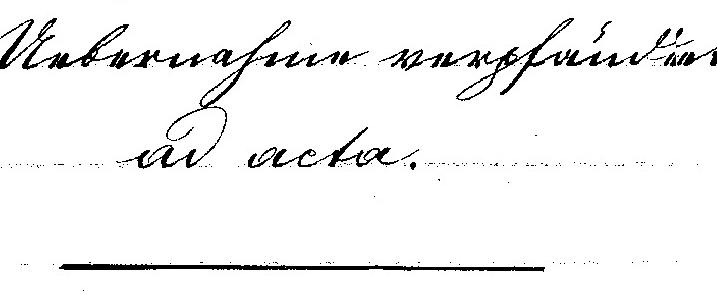 Uebernahme verpfändet
ad acta.